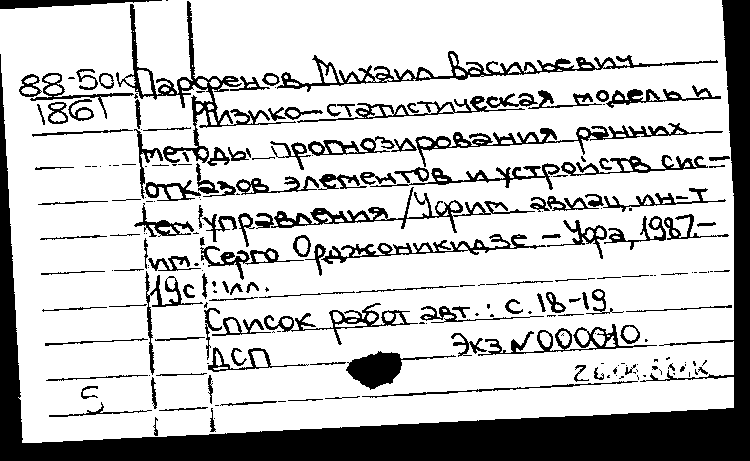 88-50К Парфенов, Михаил Васильевич
1861 Физико-статистическая модель и
методы прогнозирования ранних
отказов элементов и устройств сис-
тем управления / Уфим. авиац. ин-т
им. Серго Орджоникидзе. – Уфа, 1987.–
19с.: ил.
Список работ авт.: с. 18-19.
ДСП Экз. N 000010.
S